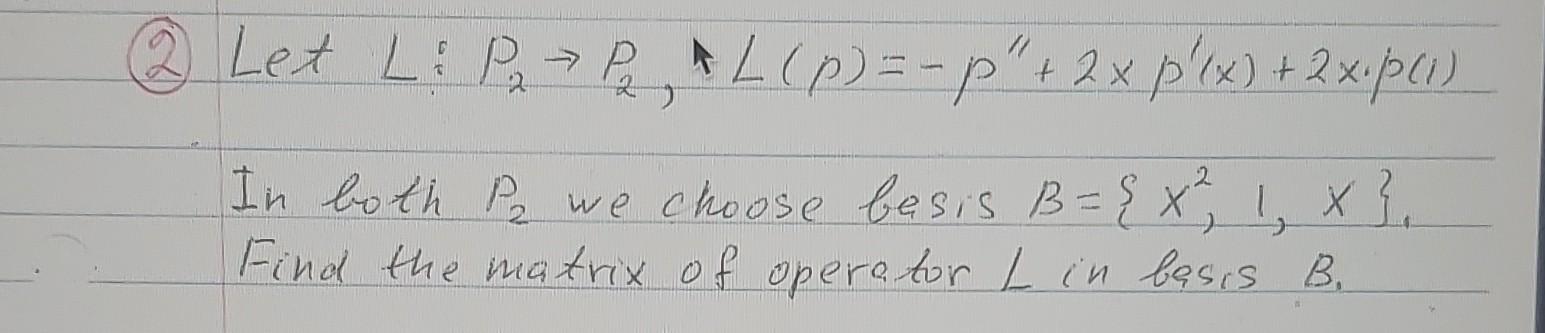 ② Let L: P₂ → P₂, L(p) = -p'' + 2x p'(x) + 2x·p(1)
In both P₂ we choose besis B = { x², 1, x }.
Find the matrix of operator L in besis B.